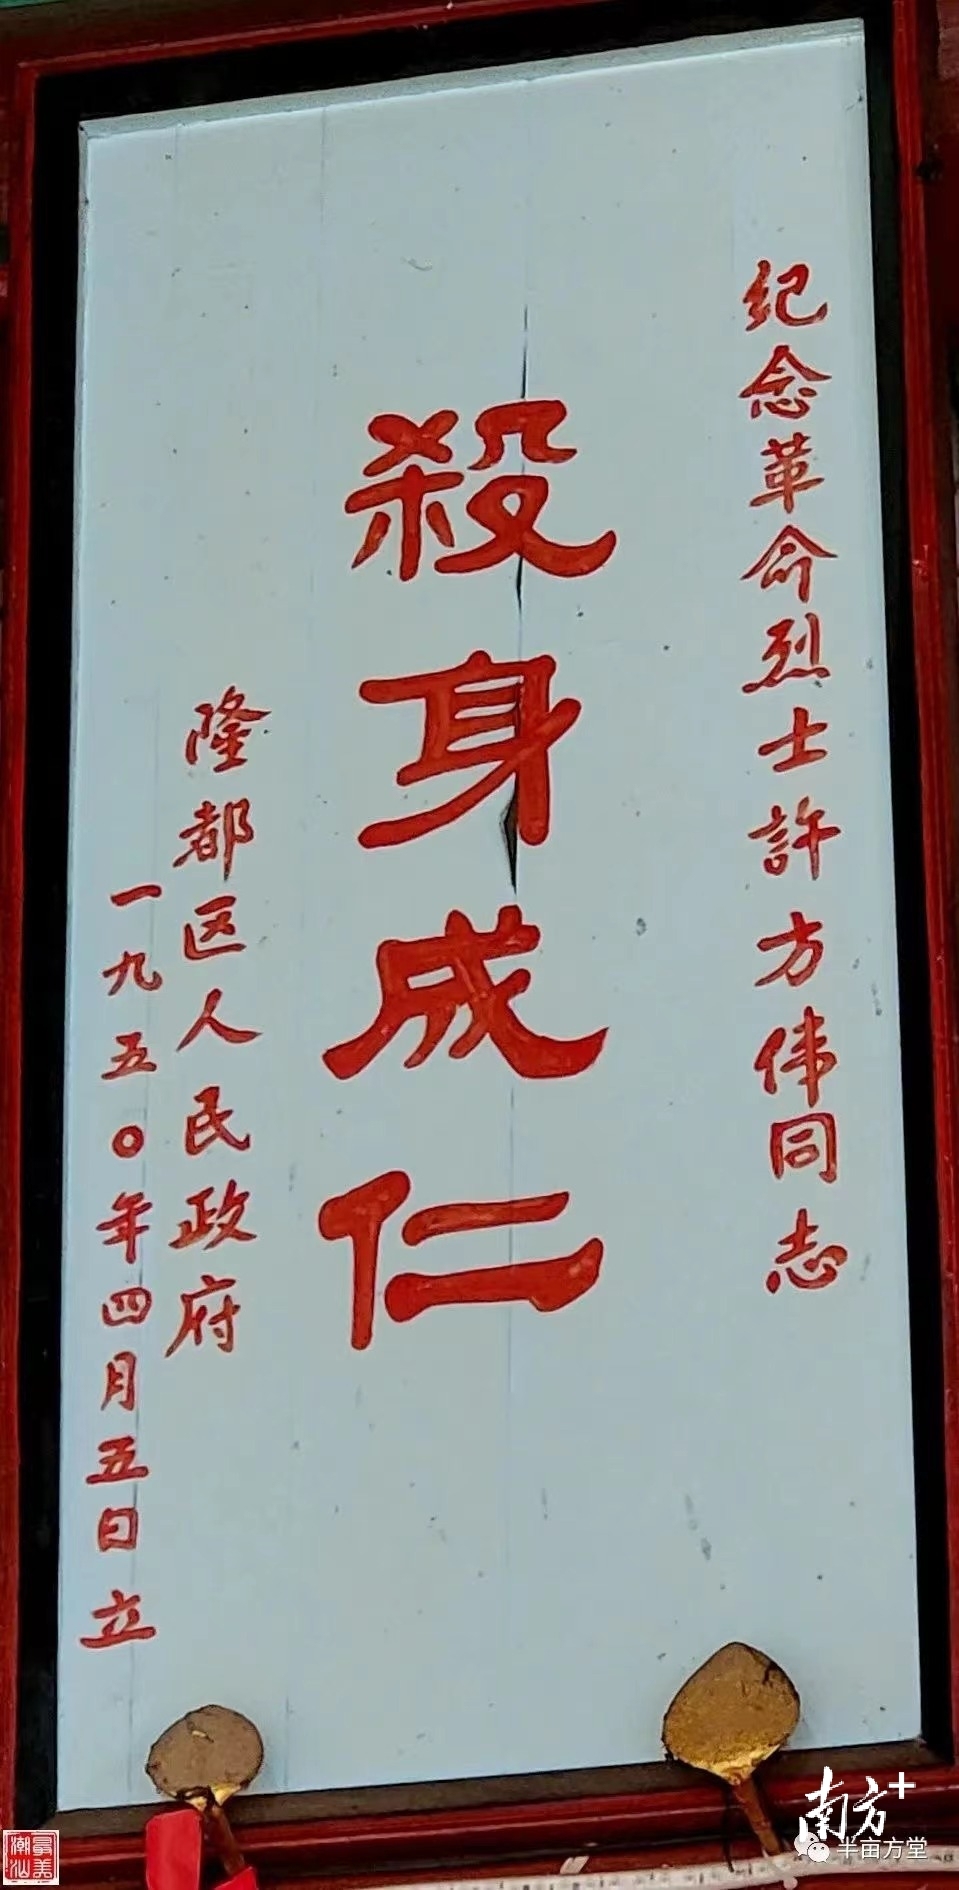 纪念革命烈士許方偉同志
殺身成仁
隆都区人民政府
一九五〇年四月五日立
南方+
半亩方堂
最美
潮汕